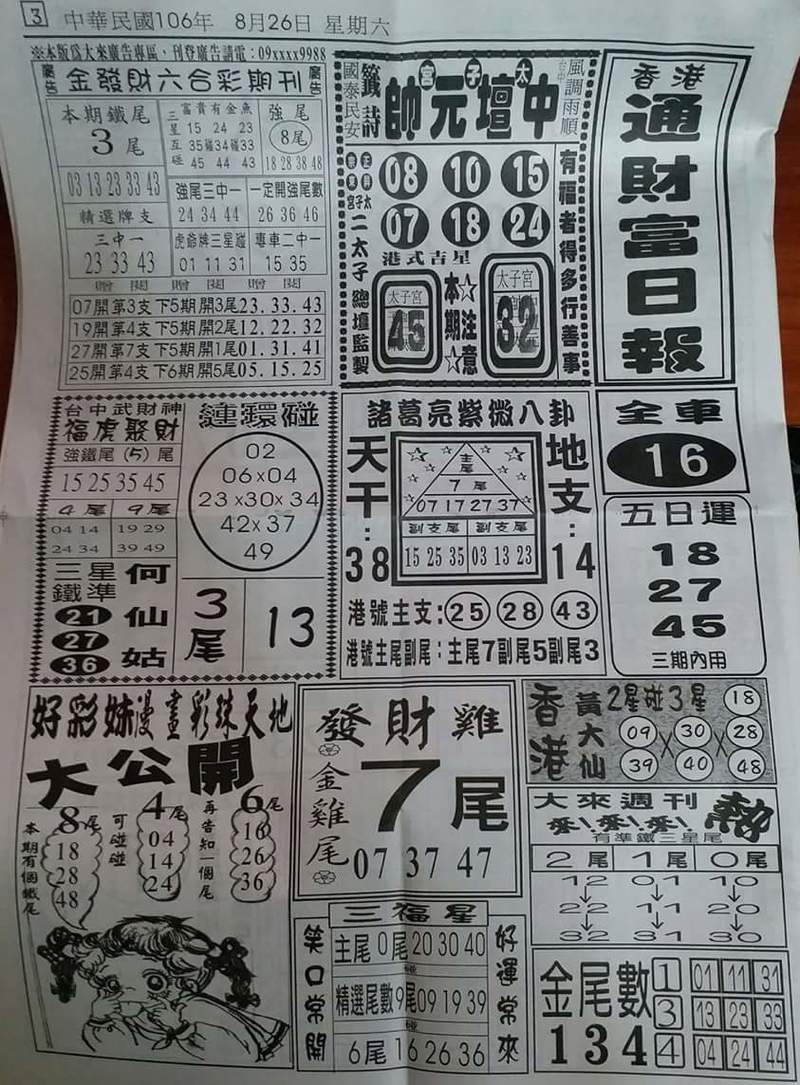 3 中華民國106年 8月26日 星期六
※本版為大來廣告專區，刊登廣告請電：09xxxx9988
廣告 金發財六合彩期刊 廣告
本期鐵尾
3尾
03 13 23 33 43
精選牌支
三中一
23 33 43
富貴有金魚
三星互碰
15 24 23
35 34 33
45 44 43
強尾
8尾
18 28 38 48
強尾三中一
24 34 44
一定開強尾數
26 36 46
虎爺牌三星碰
01 11 31
專車二中一
15 35
贈閱 贈閱 贈閱
07開第3支下5期開3尾23.33.43
19開第4支下5期開2尾12.22.32
27開第7支下5期開1尾01.31.41
25開第4支下6期開5尾05.15.25
國泰民安
籤詩
太子宮
中壇元帥
台中
風調雨順
08 10 15
07 18 24
太子宮
二太子總壇監製
有福者得多行善事
港式吉星
太子宮
45
本期☆注意☆
太子宮
32
香港
通財富日報
台中武財神
福虎聚財
強鐵尾(5)尾
15 25 35 45
4尾 9尾
04 14 19 29
24 34 39 49
三星鐵準
何仙姑
21
27
36
連環碰
02
06x04
23x30x34
42x37
49
3尾
13
諸葛亮紫微八卦
天干：38
主尾
7尾
07 17 27 37
副支尾 副支尾
15 25 35 03 13 23
地支：14
港號主支：25 28 43
港號主尾副尾：主尾7副尾5副尾3
全車
16
五日運
18
27
45
三期內用
好彩妹漫畫彩珠天地
大公開
本期有個鐵尾
8尾
18
28
48
可碰碰
4尾
04
14
24
再告知一個尾
6尾
16
26
36
發財雞
金雞尾
7尾
07 37 47
香港黃大仙
2星碰3星
18
09 30 28
39 40 48
大來週刊
熱
有準鐵三星尾
2尾 1尾 0尾
12 01 10
22 11 20
32 31 30
三福星
笑口常開
主尾0尾20 30 40
碰
精選尾數9尾09 19 39
碰
6尾16 26 36
好運常來
金尾數
134
1 01 11 31
3 13 23 33
4 04 24 44